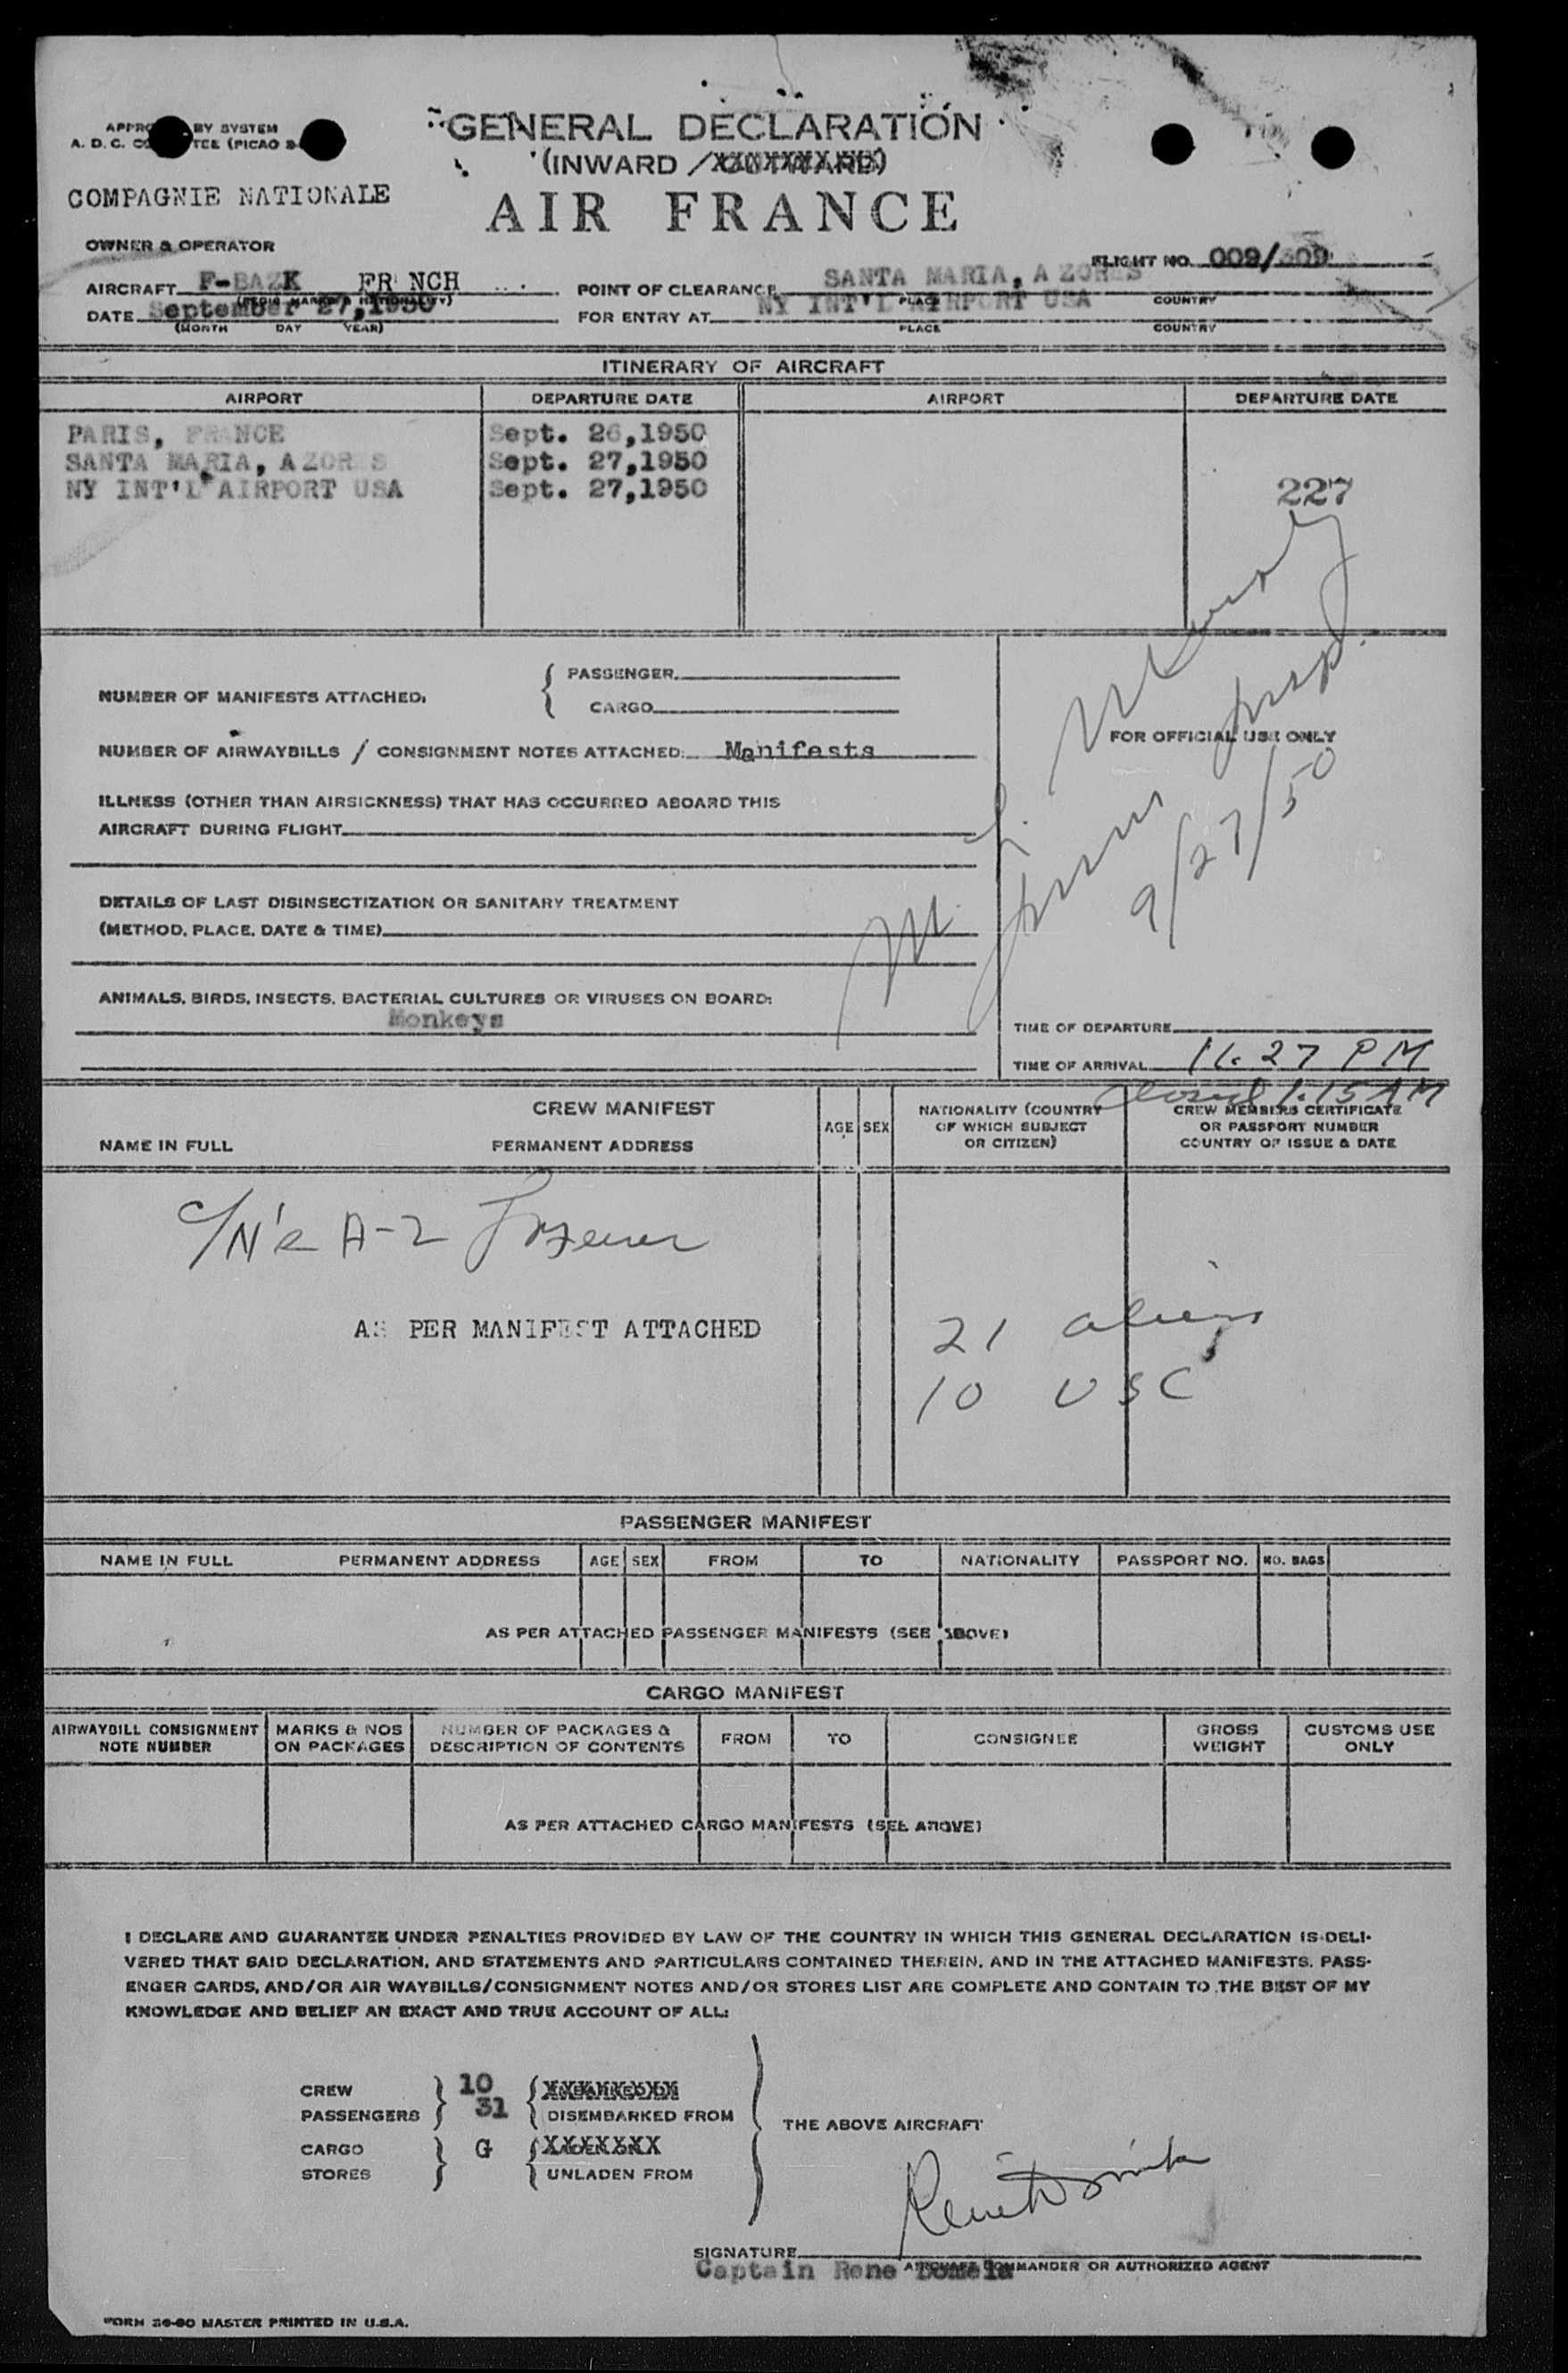 GENERAL DECLARATION
(INWARD /
AIR FRANCE
BY SYSTEM
A. D. C. (PICAO
COMPAGNIE NATIONALE
OWNER & OPERATOR
FLIGHT NO. 009/
AIRCRAFT F-BAZK FR NCH
POINT OF CLEARANCE SANTA MARIA, AZORES
PLACE COUNTRY
DATE September 27,1950
(MONTH DAY YEAR)
FOR ENTRY AT NY INT'L AIRPORT USA
PLACE COUNTRY
ITINERARY OF AIRCRAFT
AIRPORT DEPARTURE DATE AIRPORT DEPARTURE DATE
PARIS, FRANCE Sept. 26,1950
SANTA MARIA, AZORES Sept. 27,1950
NY INT'L AIRPORT USA Sept. 27,1950
227
NUMBER OF MANIFESTS ATTACHED:
PASSENGER
CARGO
NUMBER OF AIRWAYBILLS / CONSIGNMENT NOTES ATTACHED: Manifests
FOR OFFICIAL USE ONLY
9/27/50
ILLNESS (OTHER THAN AIRSICKNESS) THAT HAS OCCURRED ABOARD THIS
AIRCRAFT DURING FLIGHT
DETAILS OF LAST DISINSECTIZATION OR SANITARY TREATMENT
(METHOD, PLACE, DATE & TIME)
ANIMALS, BIRDS, INSECTS, BACTERIAL CULTURES OR VIRUSES ON BOARD:
Monkeys
TIME OF DEPARTURE
TIME OF ARRIVAL 11.27 PM
closed 1.15 AM
CREW MANIFEST
NAME IN FULL PERMANENT ADDRESS
AGE SEX
NATIONALITY (COUNTRY
OF WHICH SUBJECT
OR CITIZEN)
CREW MEMBERS CERTIFICATE
OR PASSPORT NUMBER
COUNTRY OF ISSUE & DATE
A-2
AS PER MANIFEST ATTACHED
21 aliens
10 USC
PASSENGER MANIFEST
NAME IN FULL PERMANENT ADDRESS AGE SEX FROM TO NATIONALITY PASSPORT NO. NO. BAGS
AS PER ATTACHED PASSENGER MANIFESTS (SEE ABOVE)
CARGO MANIFEST
AIRWAYBILL CONSIGNMENT
NOTE NUMBER
MARKS & NOS
ON PACKAGES
NUMBER OF PACKAGES &
DESCRIPTION OF CONTENTS
FROM TO CONSIGNEE
GROSS
WEIGHT
CUSTOMS USE
ONLY
AS PER ATTACHED CARGO MANIFESTS (SEE ABOVE)
I DECLARE AND GUARANTEE UNDER PENALTIES PROVIDED BY LAW OF THE COUNTRY IN WHICH THIS GENERAL DECLARATION IS DELI-
VERED THAT SAID DECLARATION, AND STATEMENTS AND PARTICULARS CONTAINED THEREIN, AND IN THE ATTACHED MANIFESTS, PASS-
ENGER CARDS, AND/OR AIR WAYBILLS/CONSIGNMENT NOTES AND/OR STORES LIST ARE COMPLETE AND CONTAIN TO THE BEST OF MY
KNOWLEDGE AND BELIEF AN EXACT AND TRUE ACCOUNT OF ALL:
CREW 10
PASSENGERS 31 DISEMBARKED FROM
THE ABOVE AIRCRAFT
CARGO G
STORES UNLADEN FROM
SIGNATURE
AIRCRAFT COMMANDER OR AUTHORIZED AGENT
Captain Rene
FORM 36-60 MASTER PRINTED IN U.S.A.